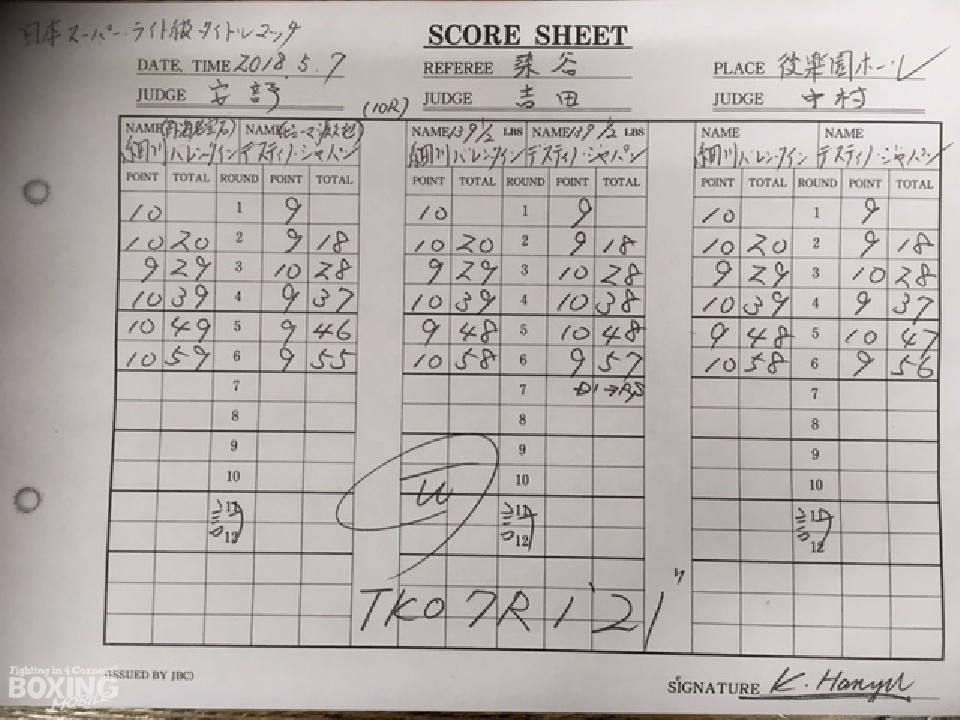 日本スーパー・ライト級タイトルマッチ
SCORE SHEET
DATE, TIME 2018.5.7 REFEREE 染谷 PLACE 後楽園ホール
JUDGE 安部 JUDGE 吉田 JUDGE 中村
(10R)
NAME NAME NAME 139 1/2 LBS NAME 139 1/2 LBS NAME NAME
細川バレンタイン デスティノ・ジャパン 細川バレンタイン デスティノ・ジャパン 細川バレンタイン デスティノ・ジャパン
POINT TOTAL ROUND POINT TOTAL POINT TOTAL ROUND POINT TOTAL POINT TOTAL ROUND POINT TOTAL
10 1 9 10 1 9 10 1 9
10 20 2 9 18 10 20 2 9 18 10 20 2 9 18
9 29 3 10 28 9 29 3 10 28 9 29 3 10 28
10 39 4 9 37 10 39 4 10 38 10 39 4 9 37
10 49 5 9 46 9 48 5 10 48 9 48 5 10 47
10 59 6 9 55 10 58 6 9 57 10 58 6 9 56
7 7 7
8 8 8
9 9 9
10 10 10
W
11 11 11
12 12 12
TKO 7R 1'21"
ISSUED BY JBC)
SIGNATURE K. Hanyu
Fighting in 4 Corners!
BOXING
MOBILE